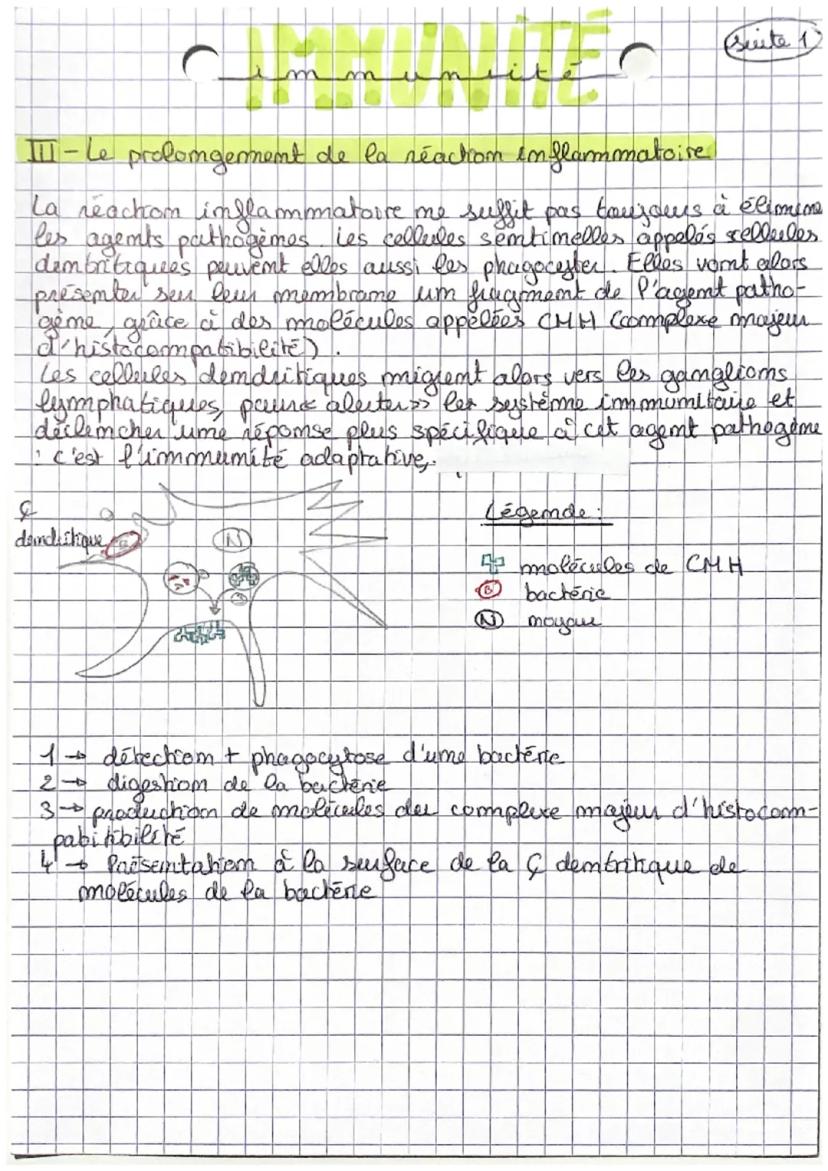 IMMUNITÉ
immunité
suite 1
III - Le prolongement de la réaction inflammatoire
La réaction inflammatoire ne suffit pas toujours à élimine
les agents pathogènes. Les cellules sentinelles appelés cellules
denbritiques peuvent elles aussi les phagocyter. Elles vont alors
présenter sur leur membrane un fragment de l'agent patho-
gène, grâce à des molécules appelées CMH (complexe majeur
d'histocompatibilité).
Les cellules dendritiques migrent alors vers les ganglions
lymphatiques, pour « alerter » le système immunitaire et
déclencher une réponse plus spécifique à cet agent pathogène
: c'est l'immunité adaptative.
Ç
dendritique
B
N
Légende :
molécules de CMH
B bactérie
N noyau
1 → détection + phagocytose d'une bactérie
2 → digestion de la bactérie
3 → production de molécules du complexe majeur d'histocom-
pabitibilité
4 → Présentation à la surface de la Ç dentritique de
molécules de la bactérie